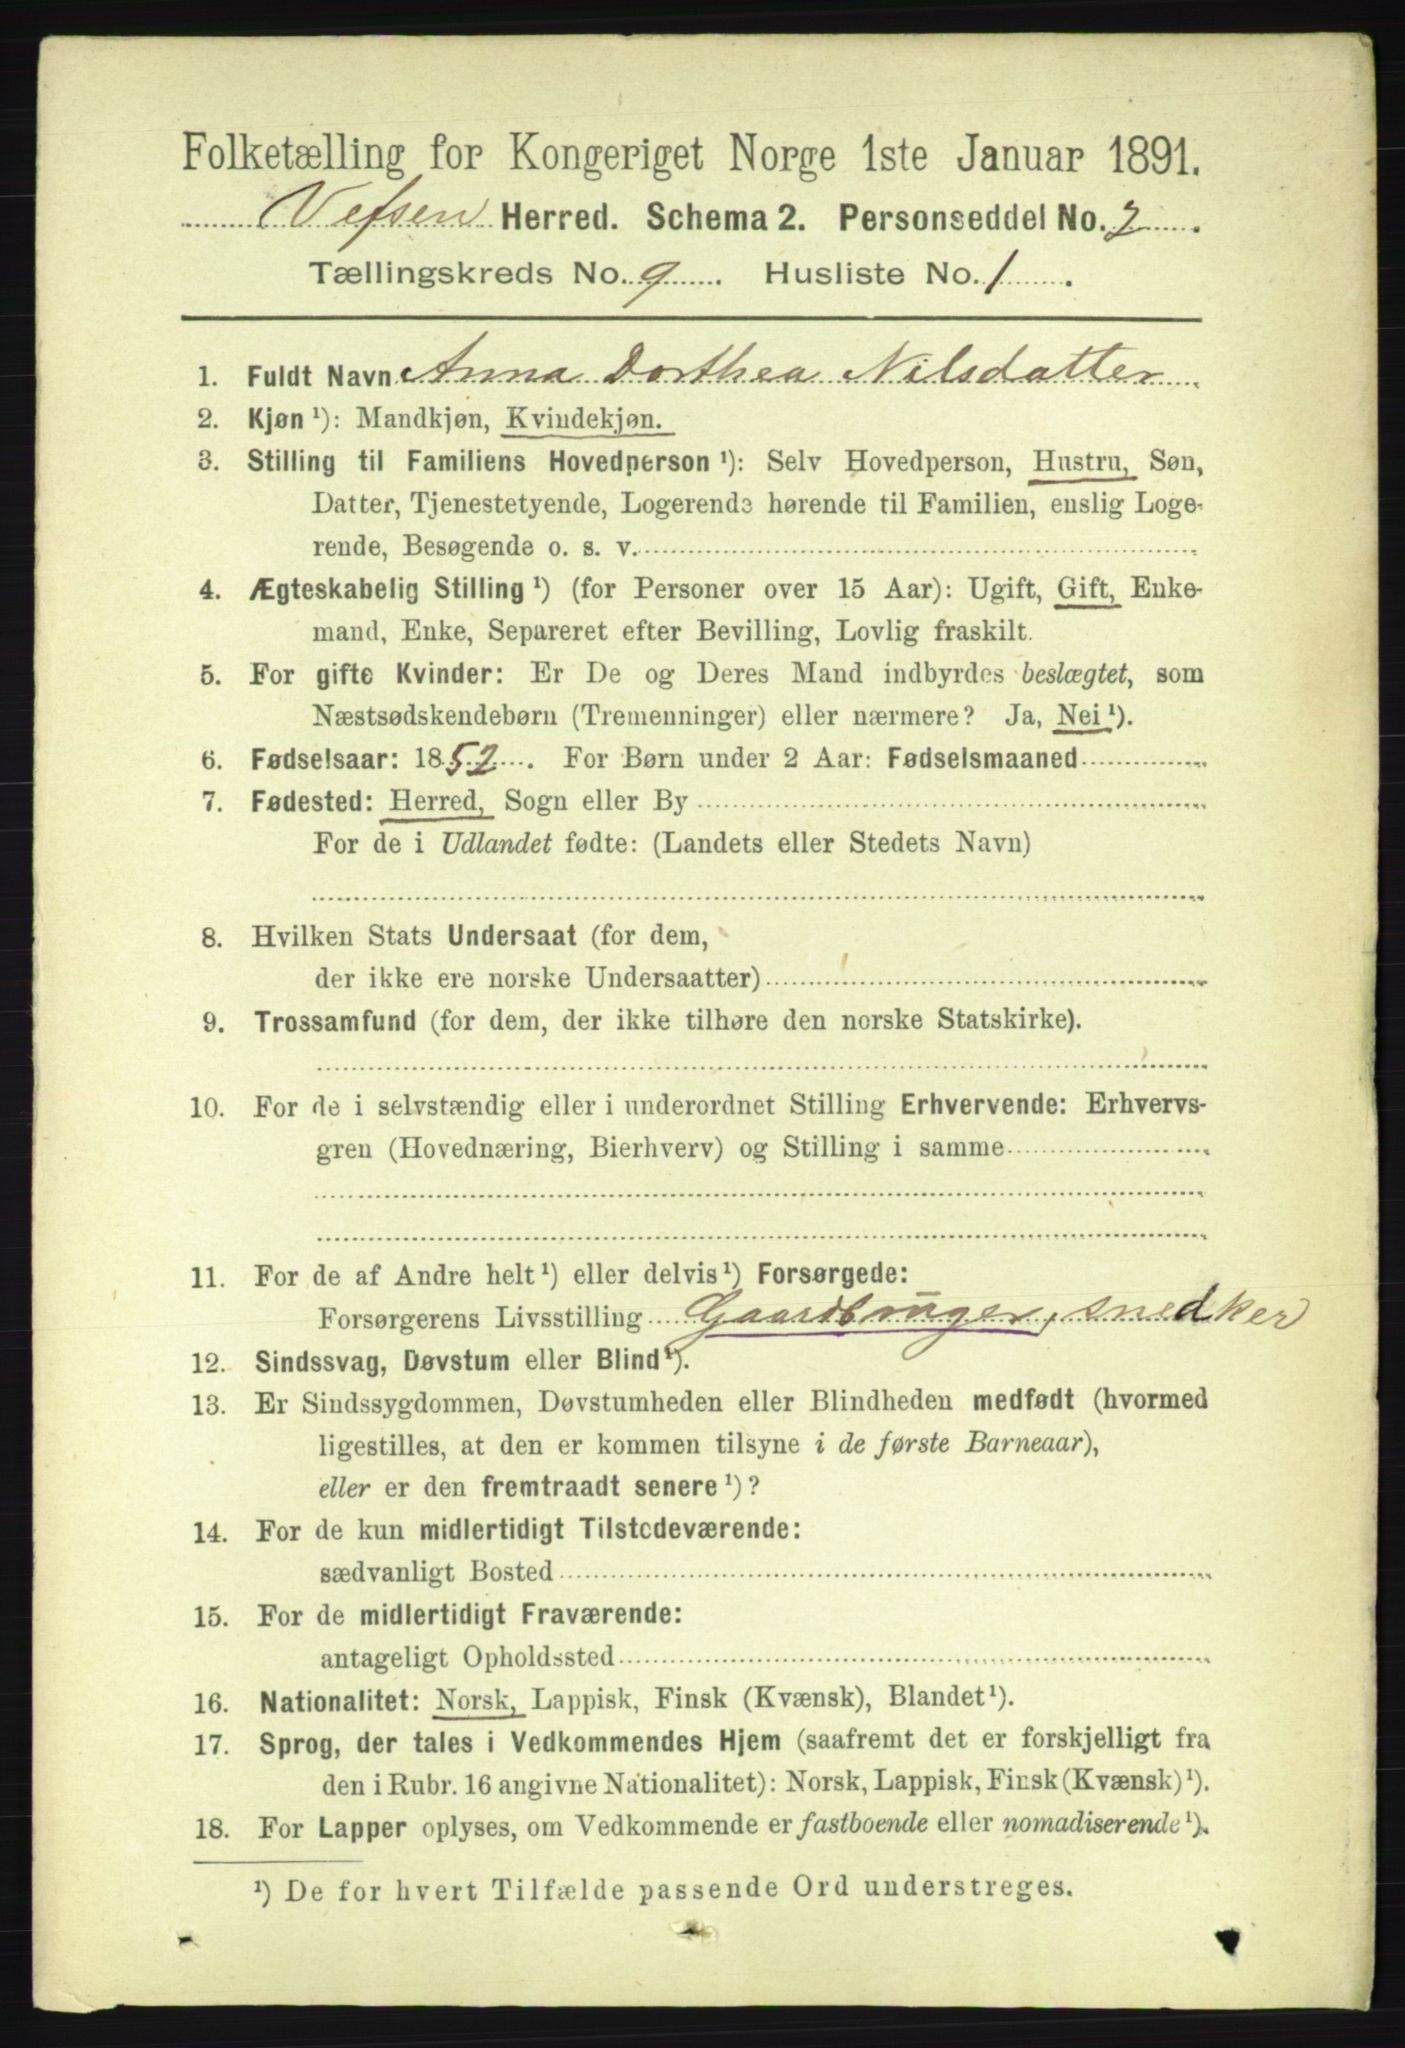 Folketælling for Kongeriget Norge 1ste Januar 1891.
Vefsen Herred. Schema 2. Personseddel No. 2.
Tællingskreds No. 9. Husliste No. 1.
1. Fuldt Navn Anna Dorthea Nilsdatter
2. Kjøn ¹): Mandkjøn, Kvindekjøn.
3. Stilling til Familiens Hovedperson ¹): Selv Hovedperson, Hustru, Søn,
Datter, Tjenestetyende, Logerende hørende til Familien, enslig Loge-
rende, Besøgende o. s. v.
4. Ægteskabelig Stilling ¹) (for Personer over 15 Aar): Ugift, Gift, Enke-
mand, Enke, Separeret efter Bevilling, Lovlig fraskilt.
5. For gifte Kvinder: Er De og Deres Mand indbyrdes beslægtet, som
Næstsødskendebørn (Tremenninger) eller nærmere? Ja, Nei ¹).
6. Fødselsaar: 1852. For Børn under 2 Aar: Fødselsmaaned
7. Fødested: Herred, Sogn eller By
For de i Udlandet fødte: (Landets eller Stedets Navn)
8. Hvilken Stats Undersaat (for dem,
der ikke ere norske Undersaatter)
9. Trossamfund (for dem, der ikke tilhøre den norske Statskirke).
10. For de i selvstændig eller i underordnet Stilling Erhvervende: Erhvervs-
gren (Hovednæring, Bierhverv) og Stilling i samme
11. For de af Andre helt ¹) eller delvis ¹) Forsørgede:
Forsørgerens Livsstilling Gaardbruger, snedker
12. Sindssvag, Døvstum eller Blind ¹).
13. Er Sindssygdommen, Døvstumheden eller Blindheden medfødt (hvormed
ligestilles, at den er kommen tilsyne i de første Barneaar),
eller er den fremtraadt senere ¹)?
14. For de kun midlertidigt Tilstedeværende:
sædvanligt Bosted
15. For de midlertidigt Fraværende:
antageligt Opholdssted
16. Nationalitet: Norsk, Lappisk, Finsk (Kvænsk), Blandet ¹).
17. Sprog, der tales i Vedkommendes Hjem (saafremt det er forskjelligt fra
den i Rubr. 16 angivne Nationalitet): Norsk, Lappisk, Finsk (Kvænsk) ¹).
18. For Lapper oplyses, om Vedkommende er fastboende eller nomadiserende ¹).
¹) De for hvert Tilfælde passende Ord understreges.